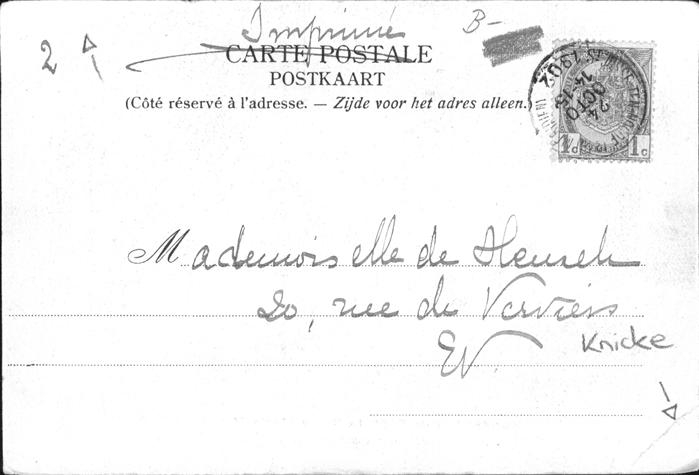 Imprimé B-
2
CARTE POSTALE
POSTKAART
(Côté réservé à l'adresse. — Zijde voor het adres alleen.)
24
OCTO
14-15
1c 1c
Mademoiselle de Heusch
20, rue de Verviers
EV.
Knicke